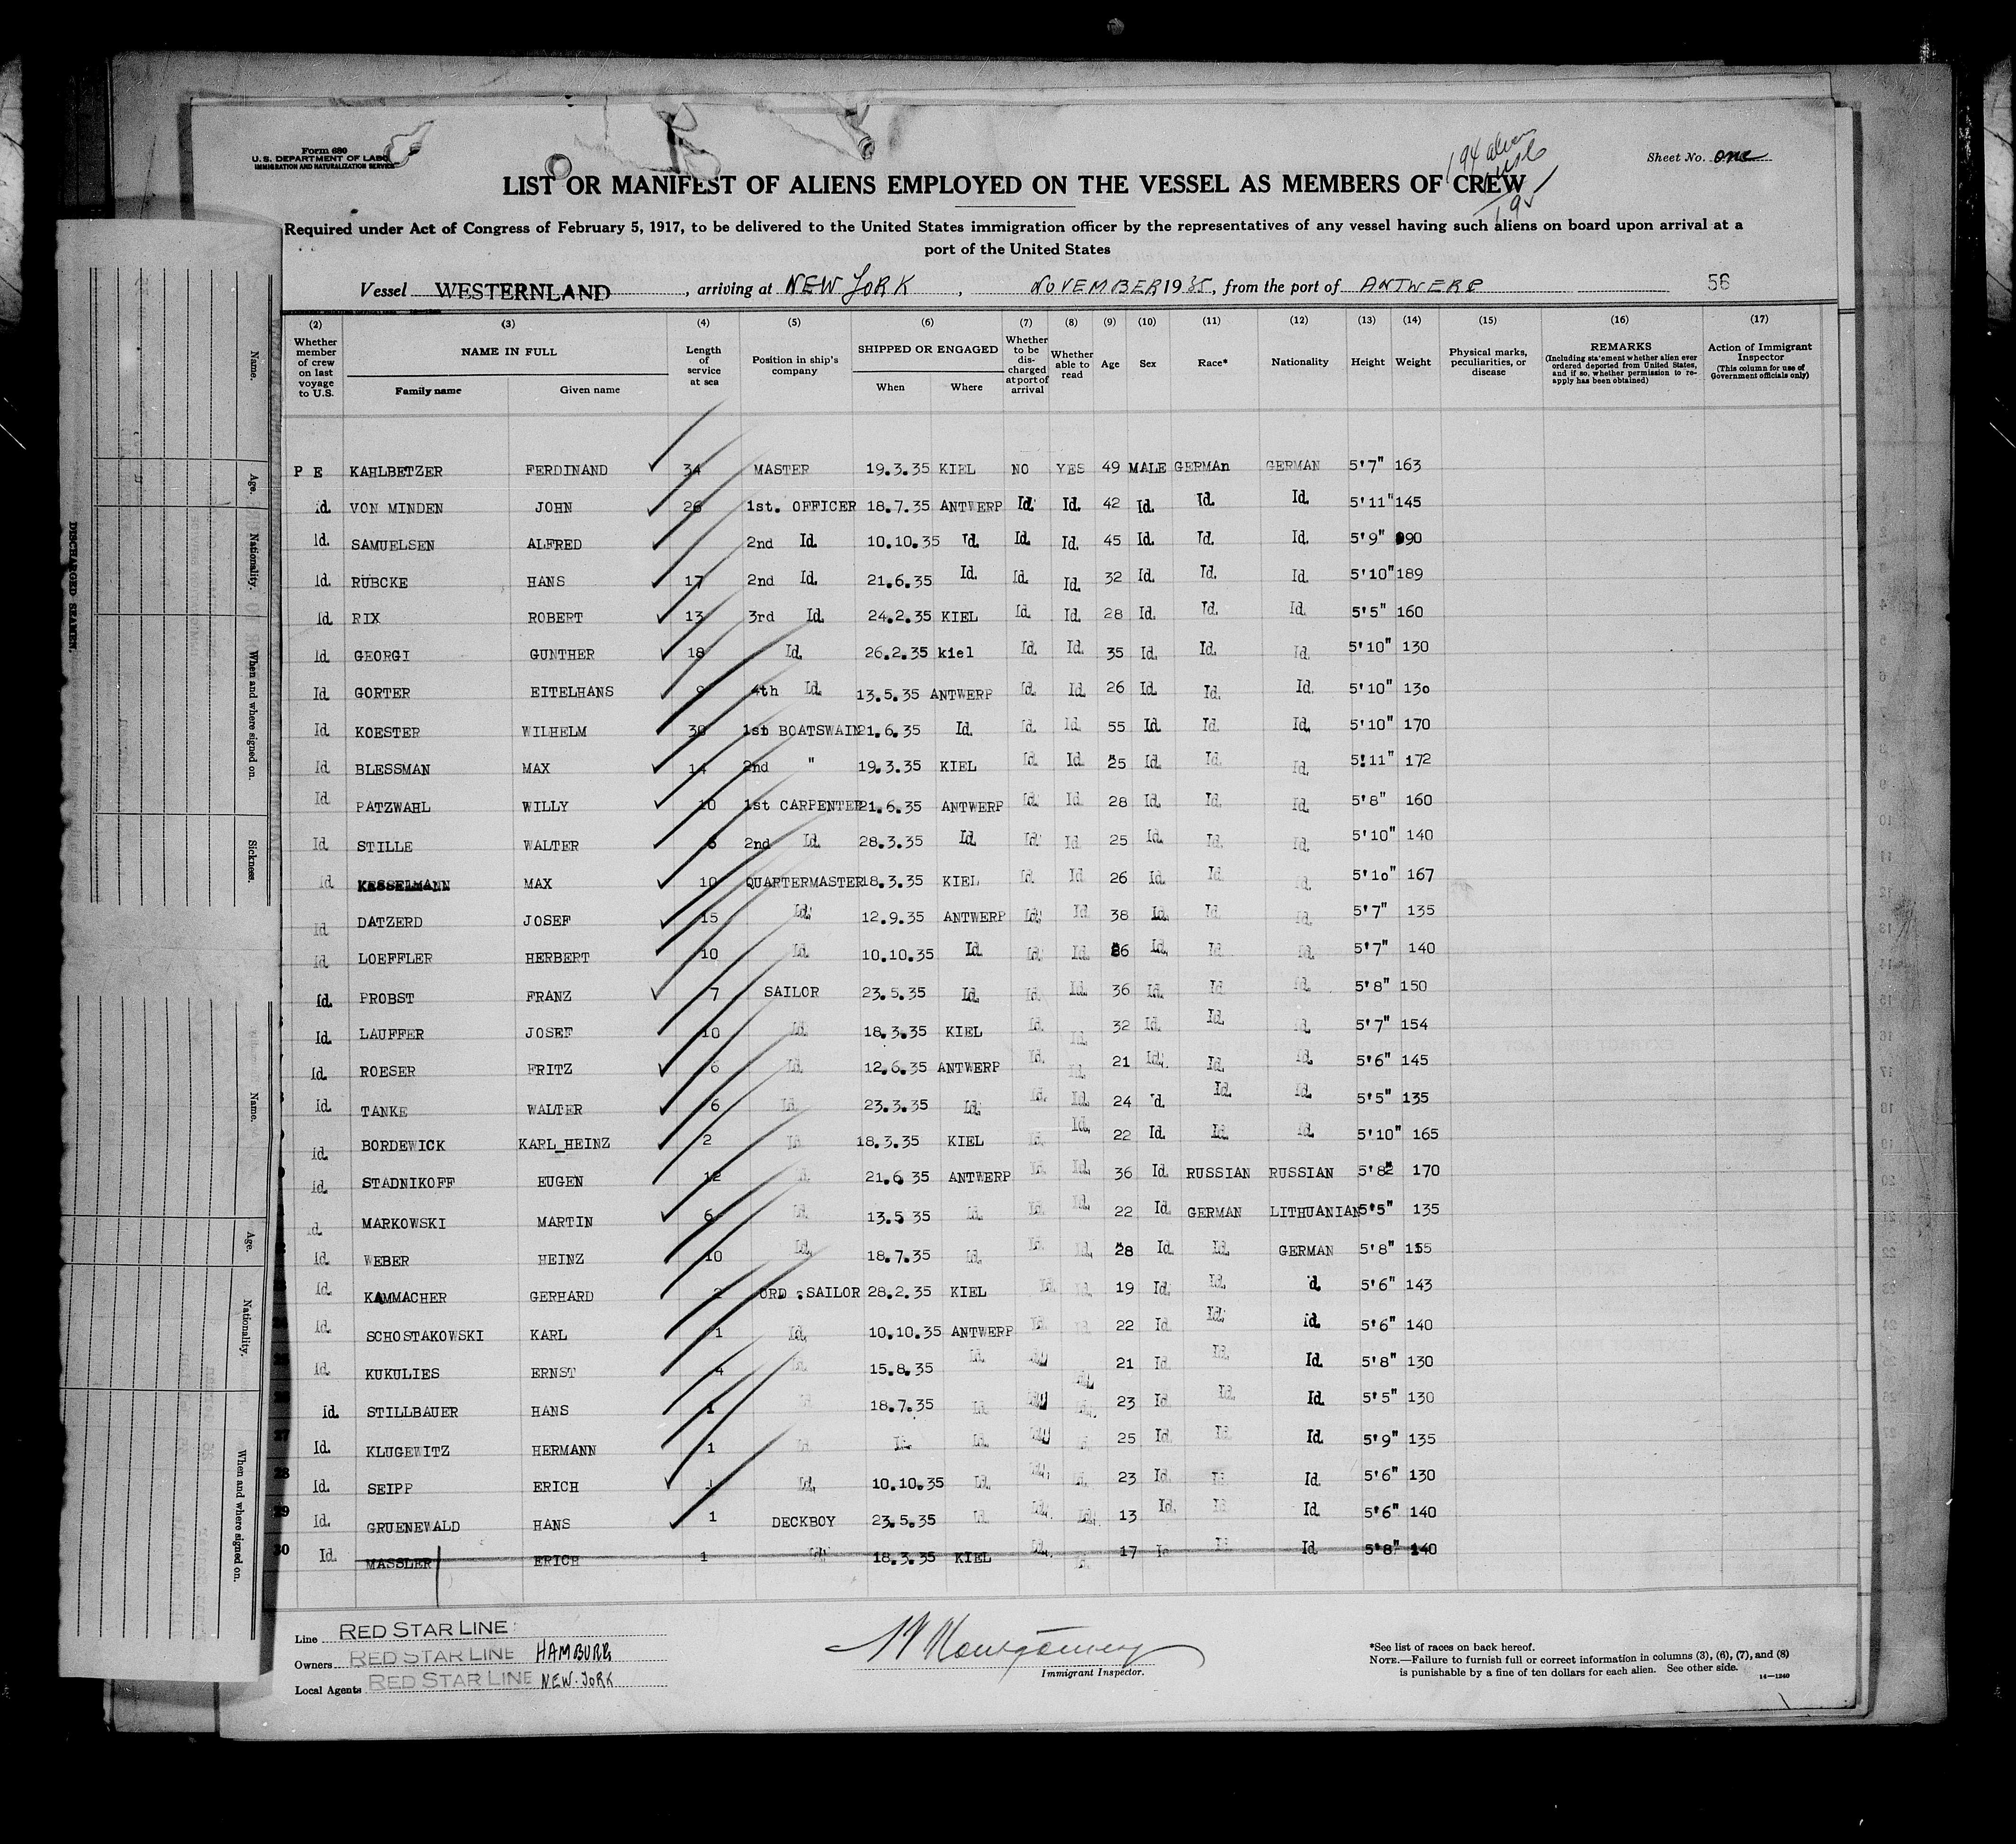 Form 680
U.S. DEPARTMENT OF LABO
IMMIGRATION AND NATURALIZATION SERVICE
Sheet No. one
LIST OR MANIFEST OF ALIENS EMPLOYED ON THE VESSEL AS MEMBERS OF CREW
Required under Act of Congress of February 5, 1917, to be delivered to the United States immigration officer by the representatives of any vessel having such aliens on board upon arrival at a
port of the United States
Vessel WESTERNLAND, arriving at NEW YORK, NOVEMBER 1935, from the port of ANTWERP 56
(2) (3) (4) (5) (6) (7) (8) (9) (10) (11) (12) (13) (14) (15) (16) (17)
Whether member of crew on last voyage to U.S. NAME IN FULL Family name Given name Length of service at sea Position in ship's company SHIPPED OR ENGAGED When Where Whether to be discharged at port of arrival Whether able to read Age Sex Race* Nationality Height Weight Physical marks, peculiarities, or disease REMARKS (Including statement whether alien ever ordered deported from United States, and if so, whether permission to reapply has been obtained) Action of Immigrant Inspector (This column for use of Government officials only)
P E KAHLBETZER FERDINAND 34 MASTER 19.3.35 KIEL NO YES 49 MALE GERMAn GERMAN 5'7" 163
Id. VON MINDEN JOHN 26 1st. OFFICER 18.7.35 ANTWERP Id. Id. 42 Id. Id. Id. 5'11" 145
Id. SAMUELSEN ALFRED 2nd Id. 10.10.35 Id. Id. Id. 45 Id. Id. Id. 5'9" 90
Id. RÜBCKE HANS 17 2nd Id. 21.6.35 Id. Id. Id. 32 Id. Id. Id. 5'10" 189
Id. RIX ROBERT 13 3rd Id. 24.2.35 KIEL Id. Id. 28 Id. Id. Id. 5'5" 160
Id. GEORGI GUNTHER 18 Id. 26.2.35 kiel Id. Id. 35 Id. Id. Id. 5'10" 130
Id. GORTER EITELHANS 9 4th Id. 13.5.35 ANTWERP Id. Id. 26 Id. Id. Id. 5'10" 130
Id. KOESTER WILHELM 30 1st BOATSWAIN 21.6.35 Id. Id. Id. 55 Id. Id. Id. 5'10" 170
Id BLESSMAN MAX 14 2nd " 19.3.35 KIEL Id. Id. 25 Id. Id. Id. 5'11" 172
Id PATZWAHL WILLY 10 1st CARPENTER 21.6.35 ANTWERP Id. Id. 28 Id. Id. Id. 5'8" 160
Id. STILLE WALTER 6 2nd Id. 28.3.35 Id. Id. Id. 25 Id. Id. Id. 5'10" 140
Id KESSELMANN MAX 10 QUARTERMASTER 18.3.35 KIEL Id. Id 26 Id. Id. Id. 5'10" 167
Id. DATZERD JOSEF 15 Id. 12.9.35 ANTWERP Id. Id 38 Id. Id. Id. 5'7" 135
Id. LOEFFLER HERBERT 10 Id. 10.10.35 Id. Id. Id. 6 Id. Id. Id. 5'7" 140
Id. PROBST FRANZ 7 SAILOR 23.5.35 Id. Id. Id. 36 Id. Id Id. 5'8" 150
Id. LAUFFER JOSEF 10 Id. 18.3.35 KIEL Id. Id. 32 Id. Id. Id. 5'7" 154
Id. ROESER FRITZ 6 Id. 12.6.35 ANTWERP Id. Id. 21 Id. Id. Id. 5'6" 145
Id. TANKE WALTER 6 Id. 23.3.35 Id. Id. Id. 24 d. Id. Id. 5'5" 135
Id. BORDEWICK KARL_HEINZ 2 Id. 18.3.35 KIEL Id. Id. 22 Id. Id. Id. 5'10" 165
Id. STADNIKOFF EUGEN 12 Id. 21.6.35 ANTWERP Id. Id. 36 Id. RUSSIAN RUSSIAN 5'8" 170
Id. MARKOWSKI MARTIN 6 Id. 13.5 35 Id. Id. Id. 22 Id. GERMAN LITHUANIAN 5'5" 135
Id. WEBER HEINZ 10 Id. 18.7.35 Id. Id. Id. 28 Id. Id. GERMAN 5'8" 155
Id. KAMMACHER GERHARD 2 ORD.SAILOR 28.2.35 KIEL Id. Id. 19 Id. Id. d. 5'6" 143
Id. SCHOSTAKOWSKI KARL 1 Id. 10.10.35 ANTWERP Id. Id. 22 Id. Id. Id. 5'6" 140
Id. KUKULIES ERNST 4 Id. 15.8.35 Id. 21 Id. Id. Id. 5'8" 130
Id. STILLBAUER HANS 1 18.7.35 Id. 23 Id. Id. Id. 5'5" 130
27 Id. KLUGEWITZ HERMANN 1 Id. Id. Id. 25 Id. Id Id. 5'9" 135
28 Id. SEIPP ERICH 1 Id. 10.10.35 Id. 23 Id. Id Id. 5'6" 130
29 Id. GRUENEWALD HANS 1 DECKBOY 23.5.35 Id. Id. Id. 13 Id. Id Id. 5'6" 140
30 Id. MASSLER ERICH 1 Id. 18.3.35 KIEL Id. 17 Id Id. 5'8" 140
Line RED STAR LINE
Owners RED STAR LINE HAMBURG
Local Agents RED STAR LINE NEW-YORK
Montgomery
Immigrant Inspector.
*See list of races on back hereof.
NOTE.—Failure to furnish full or correct information in columns (3), (6), (7), and (8)
is punishable by a fine of ten dollars for each alien. See other side.
14—1240
DISCHARGED SEAMEN.
Name. Age. Nationality. When and where signed on. Sickness.
Name. Age. Nationality. When and where signed on.